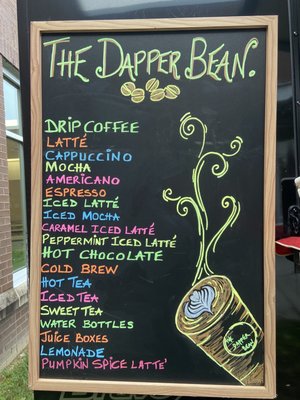 THE DAPPER BEAN.
DRIP COFFEE
LATTÉ
CAPPUCCINO
MOCHA
AMERICANO
ESPRESSO
ICED LATTÉ
ICED MOCHA
CARAMEL ICED LATTÉ
PEPPERMINT ICED LATTÉ
HOT CHOCOLATE
COLD BREW
HOT TEA
ICED TEA
SWEET TEA
WATER BOTTLES
JUICE BOXES
LEMONADE
PUMPKIN SPICE LATTE'
THE
DAPPER
BEAN